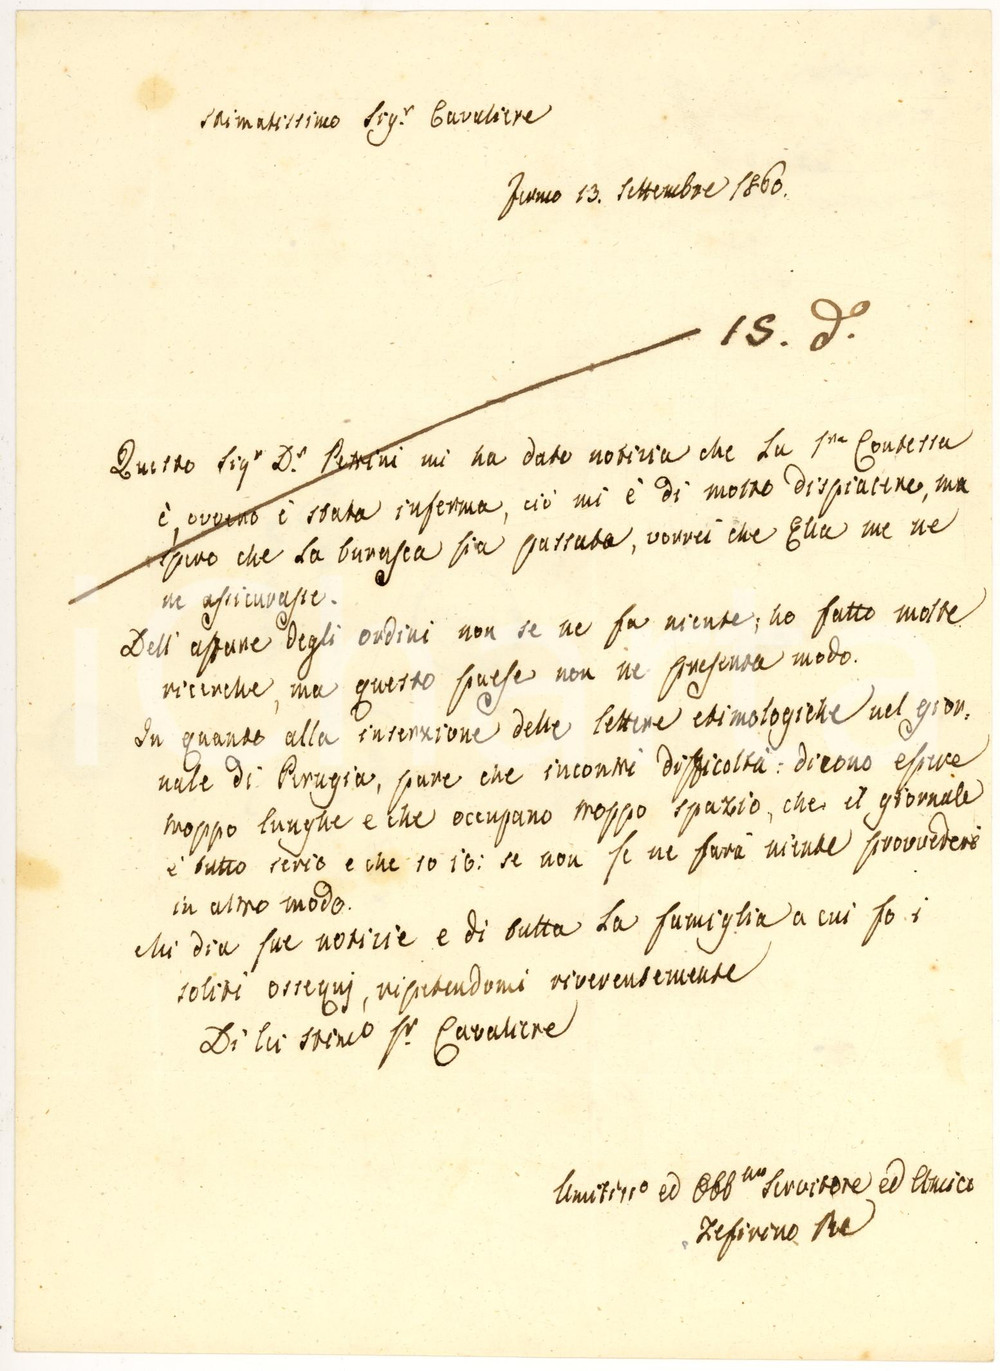 Stimatissimo Sigr. Cavaliere
Fermo 13. Settembre 1860.
15. do.
Questo Sigr Dr. Petrini mi ha dato notizia che La Sra Contessa
è, ovvero è stata inferma, ciò mi è di molto dispiacere, ma
spero che La burasca sia passata, vorrei che Ella me ne
ne assicurasse.
Dell' affare degli ordini non se ne fa niente; ho fatto molte
ricerche, ma questo paese non ne presenta modo.
In quanto alla inserzione delle lettere etimologiche nel gior,
nale di Perugia, pare che incontri difficoltà: dicono essere
troppo lunghe e che occupano troppo spazio, che il giornale
è tutto serio e che so io: se non se ne farà niente provvederò
in altro modo.
Mi dia sue notizie e di tutta La famiglia a cui fo i
soliti ossequj, ripetendomi riverentemente
Di lei stimo Sr. Cavaliere
Umilisso ed Obbmo Servitore ed Amico
Zefirino Re